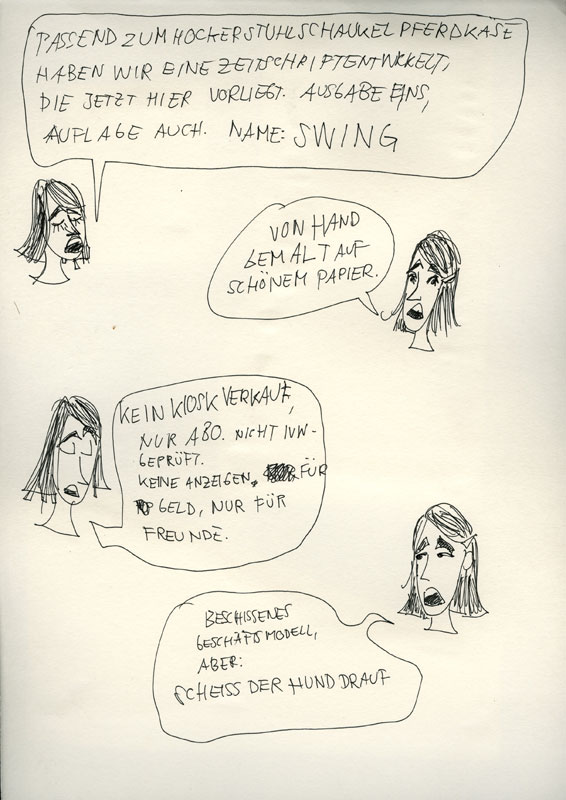 PASSEND ZUM HOCKERSTUHLSCHAUKELPFERDKASE
HABEN WIR EINE ZEITSCHRIFT ENTWICKELT,
DIE JETZT HIER VORLIEGT. AUSGABE EINS,
AUFLAGE AUCH. NAME: SWING
VON HAND
GEMALT AUF
SCHÖNEM PAPIER.
KEIN KIOSKVERKAUF,
NUR ABO. NICHT IVW-
GEPRÜFT.
KEINE ANZEIGEN, FÜR
GELD, NUR FÜR
FREUNDE.
BESCHISSENES
GESCHÄFTSMODELL,
ABER:
SCHEISS DER HUND DRAUF